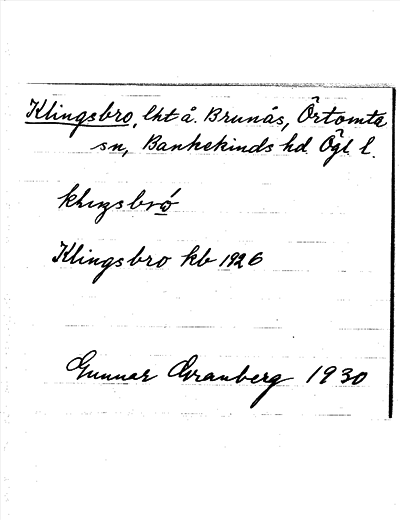 Klingsbro, lht å. Brunås, Örtomta
sn, Bankekinds hd. Ögl l.
Klingsbro kb 1926
Gunnar Granberg 1930